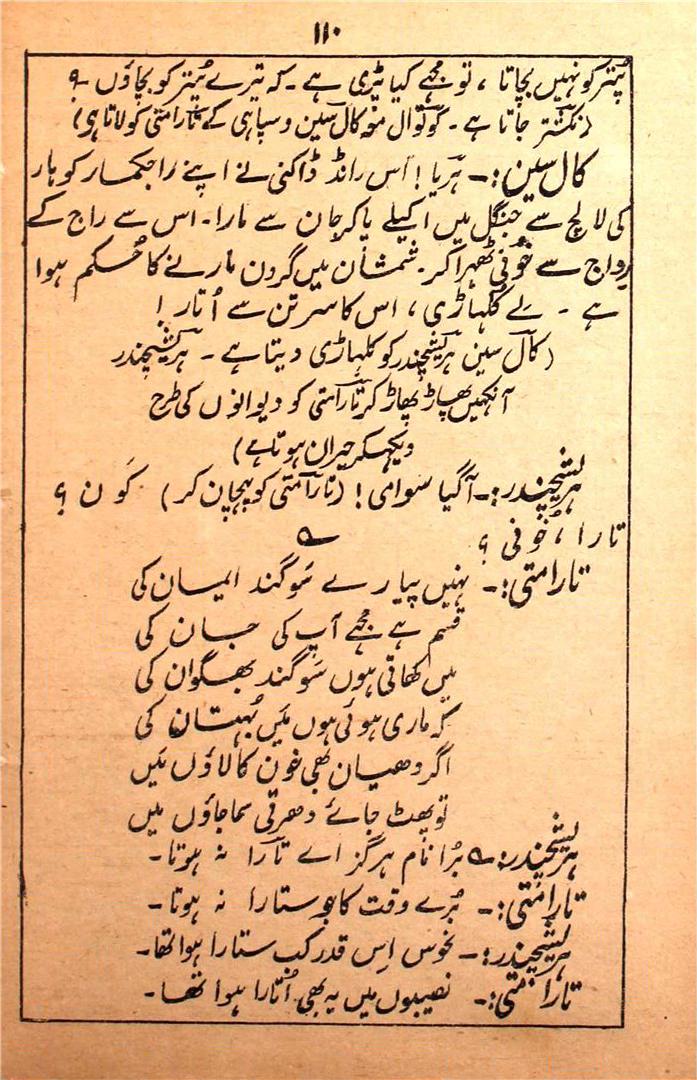 ۱۱۰
پُتر کو نہیں بچاتا ، تو مجھے کیا پڑی ہے۔ کہ تیرے پُتر کو بچاؤں ؟
(نکشتر جاتا ہے۔ کوتوال منہ کال سین و سپاہی کے تارامتی کو لاتا ہی)
کال سین :۔ ہریا ! اُس رانڈ ڈاکنی نے اپنے راجکمار کو ہار
کی لالچ سے جنگل میں اکیلے پاکر جان سے مارا۔ اس سے راج کے
رواج سے خُونی ٹھہرا کر۔ شمشان میں گردن مارنے کا حُسکم ہوا
ہے ۔ لے کلہاڑی ، اس کا سر تن سے اُتار !
(کال سین ہریشچندر کو کلہاڑی دیتا ہے ۔ ہریشچندر
آنکھیں پھاڑ پھاڑ کر تارامتی کو دیوانوں کی طرح
ویکہکر حیران ہوتا ہے)
ہریشچندر :۔ آگیا سوامی ! (تارامتی کو پہچان کر) کَون ؟
تارا ، خُونی ؟
تارامتی :۔ نہیں پیارے سَوگند ایمان کی
قسم ہے مجھے آپ کی جان کی
میں کھاتی ہوں سَوگند بھگوان کی
کہ ماری ہوئی ہوں مَیں بُہتان کی
اگر دھیان بھی خون کا لاؤں مَیں
تو پھٹ جائے دھرتی سما جاؤں میں
ہریشچندر :۔ بُرا نام ہرگز اے تارا نہ ہوتا۔
تارامتی :۔ بُرے وقت کا جو ستارا نہ ہوتا۔
ہریشچندر :۔ نحوس اِس قدر کب ستارا ہوا تھا۔
تارامتی :۔ نصیبوں میں یہ بھی اُتارا ہوا تھا۔